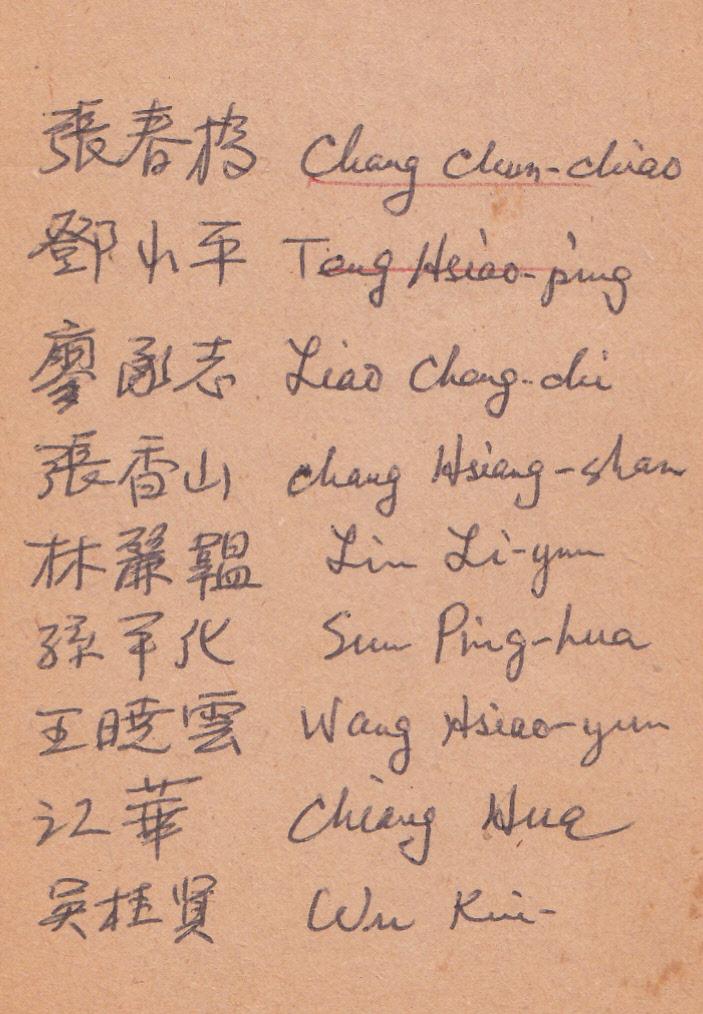 張春橋 Chang Chun-chiao
鄧小平 Teng Hsiao-ping
廖承志 Liao Cheng-chi
張香山 Chang Hsiang-shan
林麗韞 Lin Li-yun
孫平化 Sun Ping-hua
王曉雲 Wang Hsiao-yun
江華 Chiang Hua
吳桂賢 Wu Kui-